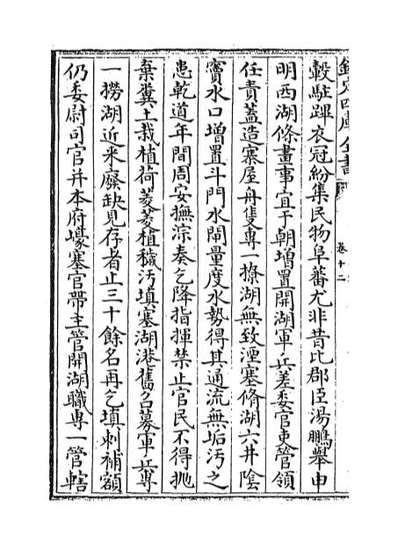 欽定四庫全書
卷十二
轂駐蹕衣冠紛集民物阜蕃尤非昔比郡臣湯鵬舉申
明西湖條畫事宜于朝增置開湖軍兵差委官吏管領
任責蓋造寨屋舟隻專一撩湖無致湮塞脩湖六井陰
竇水口增置斗門水閘量度水勢得其通流無垢汚之
患乾道年間周安撫淙奏乞降指揮禁止官民不得抛
棄糞土栽植荷菱菱植穢汚填塞湖港舊召募軍兵專
一撈湖近來廢缺見存者止三十餘名再乞填刺補額
仍委尉司官并本府壕塞官帶主管開湖職專一管轄